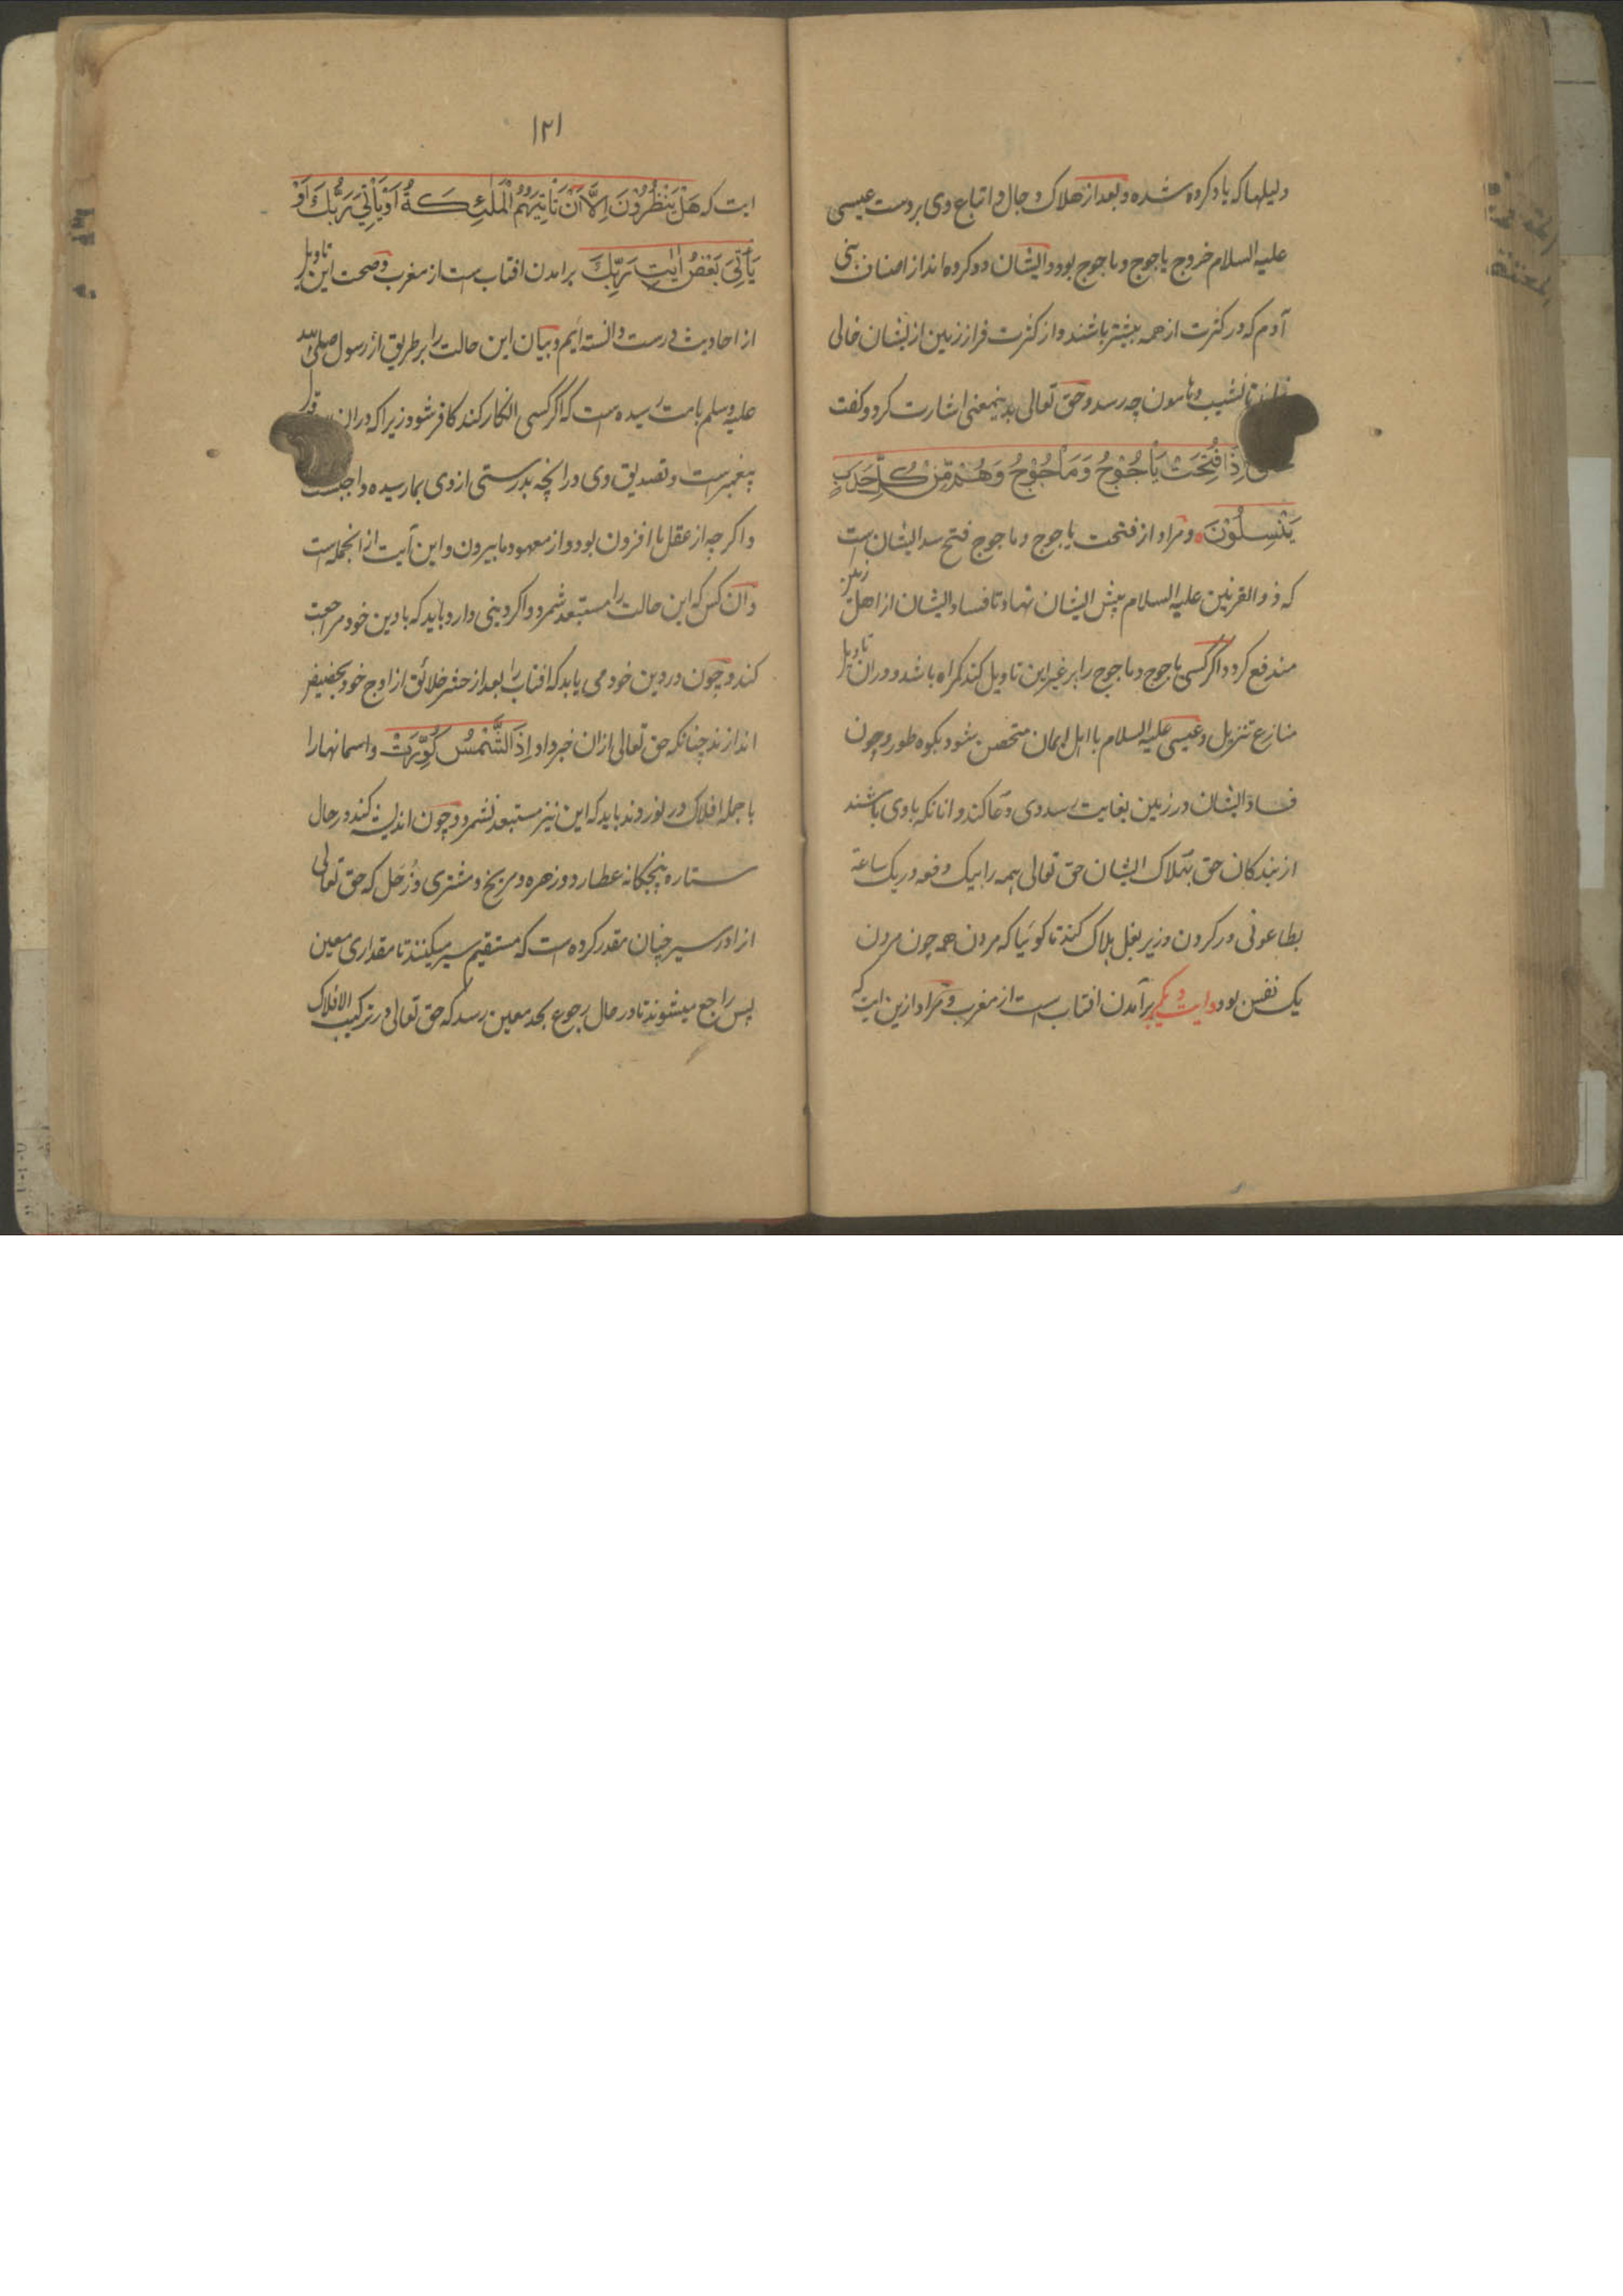 دلیلها که یاد کرده شده و بعد از هلاک دجال و اتباع وی بر دست عیسی
علیه السلام خروج یاجوج و ماجوج بود و ایشان دو کروه اند از اصناف بنی
آدم که در کثرت از همه بیشتر باشند و از کثرت فراز زمین از یشان خالی
نشیب و هامون چه رسد و حق تعالی بدینمعنی اشارت کرد و کفت
اِذَا فُتِحَتْ یَاْجُوْجُ وَمَاْجُوْجُ وَهُمْ مِّنْ كُلِّ حَدَبٍ
یَّنْسِلُوْنَ و مراد از فتحت یاجوج و ماجوج فتح سد ایشان است
که ذو القرنین علیه السلام پیش ایشان نهاد تا فساد ایشان از اهل زمین
مندفع کرد و اکر کسی یاجوج و ماجوج را بر غیر این تاویل کند کمراه باشد و دران تاویل
منازع تنزیل و عیسی علیه السلام با اهل ایمان متحصن بشود بکوه طور و چون
فساد ایشان در زمین بغایت رسد وی دعا کند و انانکه با وی باشند
از بندکان حق بهلاک ایشان حق تعالی همه را بیک دفعه در یک ساعة
بطاعونی در کردن و زیر بغل هلاک کند تا کوئیا که مردن همه چون مردن
یک نفس بود و ایت دیکر برآمدن افتاب است از مغرب و مراد ازین ایت که
۱۲۱
ایت که هَلْ یَنْظُرُوْنَ اِلَّا اَنْ تَاْتِیَهُمُ الْمَلٰئِكَةُ اَوْ یَاْتِیَ رَبُّكَ اَوْ
یَاْتِیَ بَعْضُ اٰیٰتِ رَبِّكَ برامدن افتاب است از مغرب و صحت این تاویل
از احادیث درست دانسته ایم و بیان این حالت را بر طریق از رسول صلی الله
علیه وسلم بامت رسیده است که اکر کسی انکار کند کافر شود زیرا که دران
پیغمبر است و تصدیق وی در انچه بدرستی از وی بما رسیده واجبست
و اکر چه از عقل ما افزون بود و از معهود ما بیرون و این آیت از انجمله است
و ان کس که این حالت را مستبعد شمرد و اکر دینی دارد باید که با دین خود مراجعت
کند و چون در دین خود می یابد که افتاب را بعد از حشر خلائق از اوج خود بحضیض
اندازند چنانکه حق تعالی ازان خبر داد اِذَا الشَّمْسُ كُوِّرَتْ و اسمانها را
با جمله افلاک در نوردند باید که این نیز مستبعد نشمرد و چون اندیشه کند در حال
ستاره پنجکانه عطارد و زهره و مریخ و مشتری و زُحَل که حق تعالی
انرا در سیر چنان مقدر کرده است که مستقیم سیر میکنند تا مقداری معین
پس راجع میشوند تا در حال رجوع بحد معین رسد که حق تعالی در ترکیب الافلاک